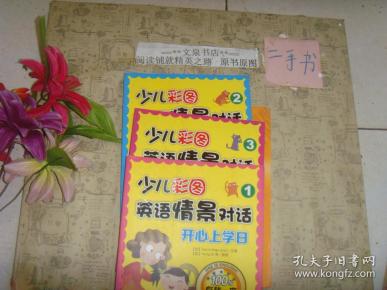 文泉书店
阅读铺就精英之路 原书原图
二手书
少儿彩图
2
情景对话
少儿彩图
3
英语情景对话
少儿彩图
1
英语情景对话
开心上学日
100%
孔夫子旧书网